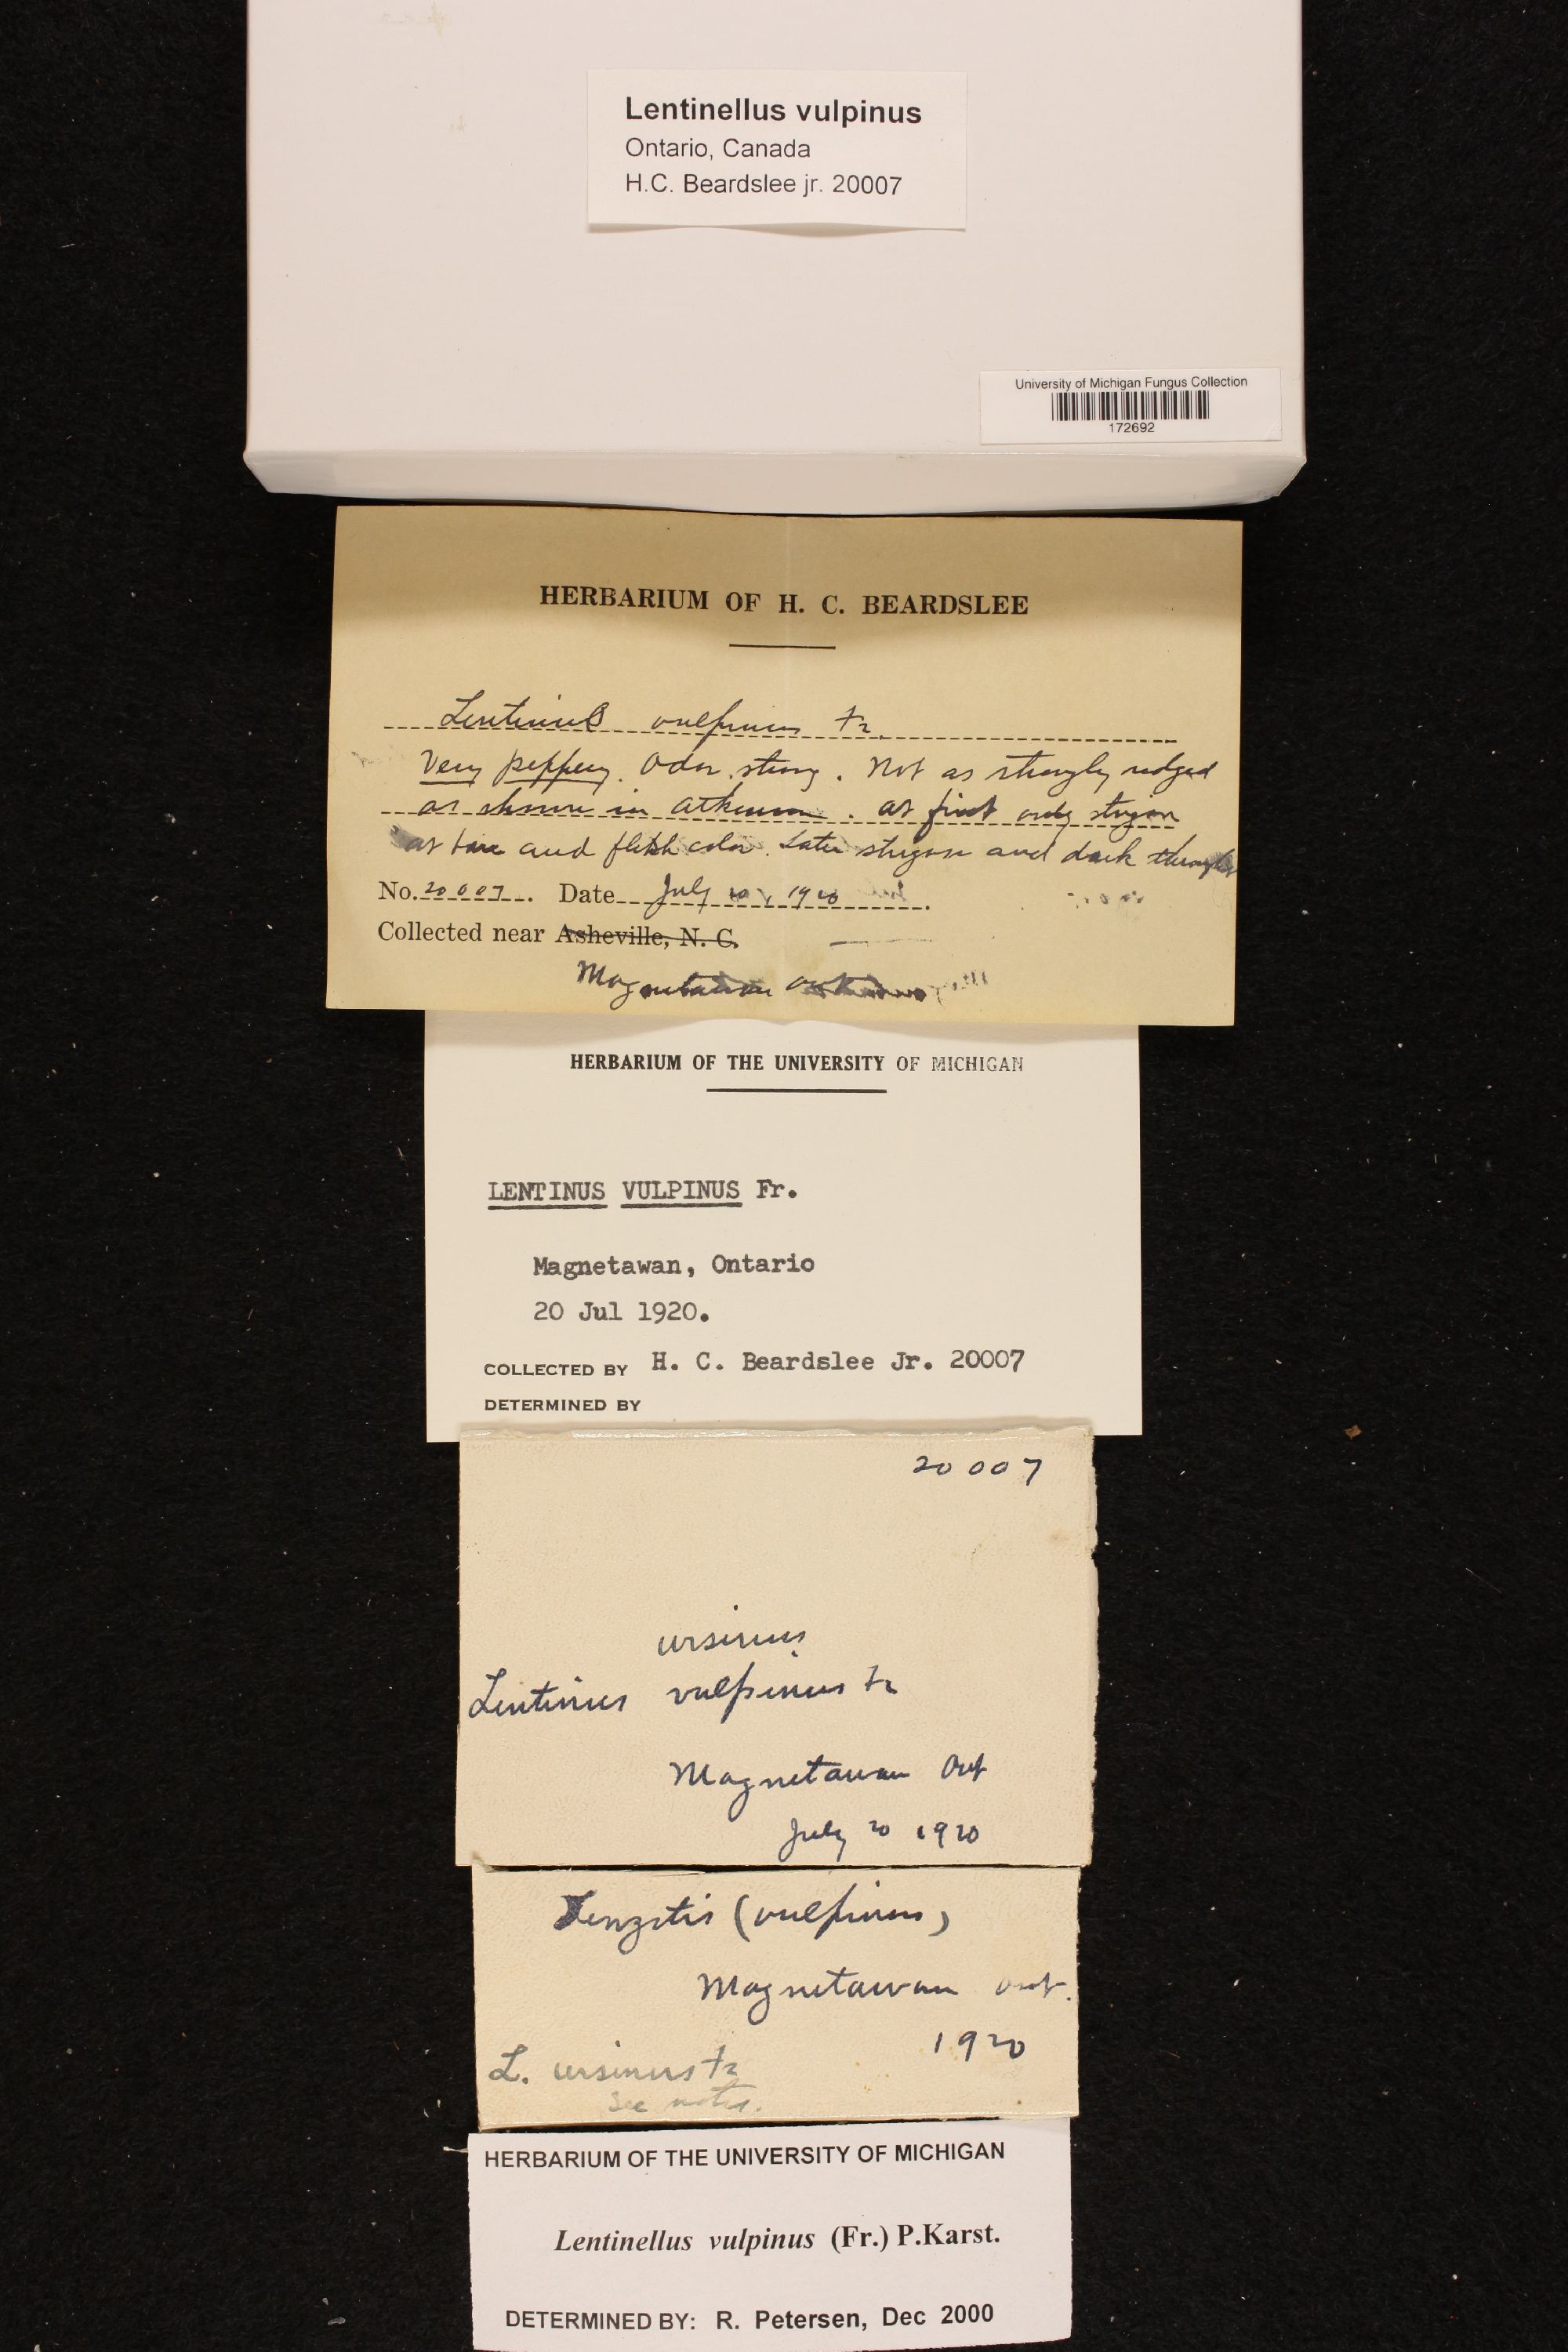 Lentinellus vulpinus
Ontario, Canada
H.C. Beardslee jr. 20007
University of Michigan Fungus Collection
172692
HERBARIUM OF H. C. BEARDSLEE
Lentinus vulpinus Fr.
Very peppery. Odor strong. Not as strongly ridged
as shown in Atkinson. at first only strigose
at base and flesh color. Later strigose and dark
No. 20007. Date July 20, 1920.
Collected near Asheville, N. C.
Magnetawan Ontario
HERBARIUM OF THE UNIVERSITY OF MICHIGAN
LENTINUS VULPINUS Fr.
Magnetawan, Ontario
20 Jul 1920.
COLLECTED BY H. C. Beardslee Jr. 20007
DETERMINED BY
20007
ursinus
Lentinus vulpinus Fr
Magnetawan Ont
July 20 1920
Lenzites (vulpinus)
Magnetawan Ont.
1920
L. ursinus Fr
See notes.
HERBARIUM OF THE UNIVERSITY OF MICHIGAN
Lentinellus vulpinus (Fr.) P.Karst.
DETERMINED BY: R. Petersen, Dec 2000